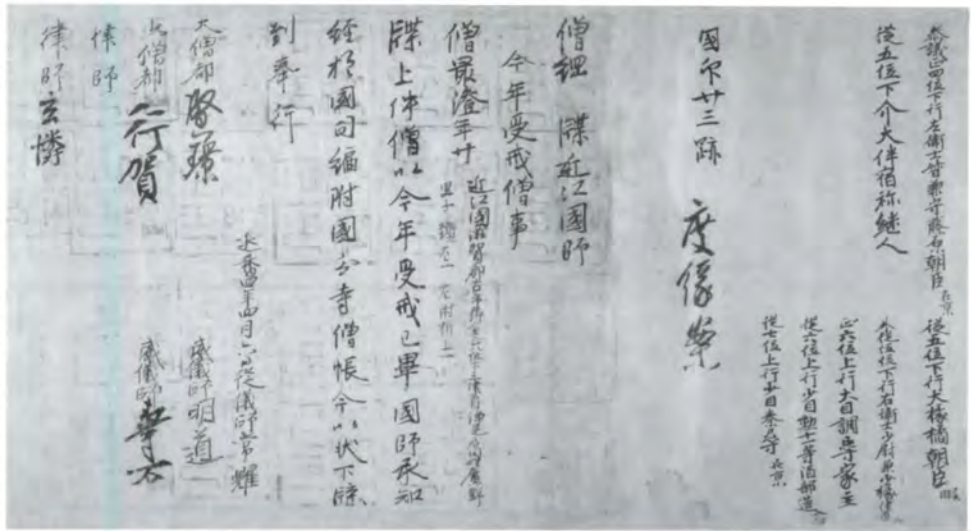 參議正四位下行左衛士督兼守藤原朝臣 在京
從五位下介大伴宿祢継人
從五位下行大掾橘朝臣 暇
外從五位下行右衛士少尉兼少掾
正六位上行大目調忌寸家主
從六位上行少目勲十一等酒部造
從七位上行少目秦忌寸 在京
國印廿三跡
度縁案
僧綱 牒近江國師
今年受戒僧事
僧最澄年廿 近江國滋賀郡古市郷戸主正六位上 三津首浄足戸口同姓廣野
黒子 頸左一 左肘折上一
牒上件僧以今年受戒已畢國師承知
經於國司編附國分寺僧帳今以状下牒
到奉行
延暦四年四月六日從儀師常耀
大僧都賢璟
威儀師明道
少僧都行賀
威儀師
律師
律師玄憐